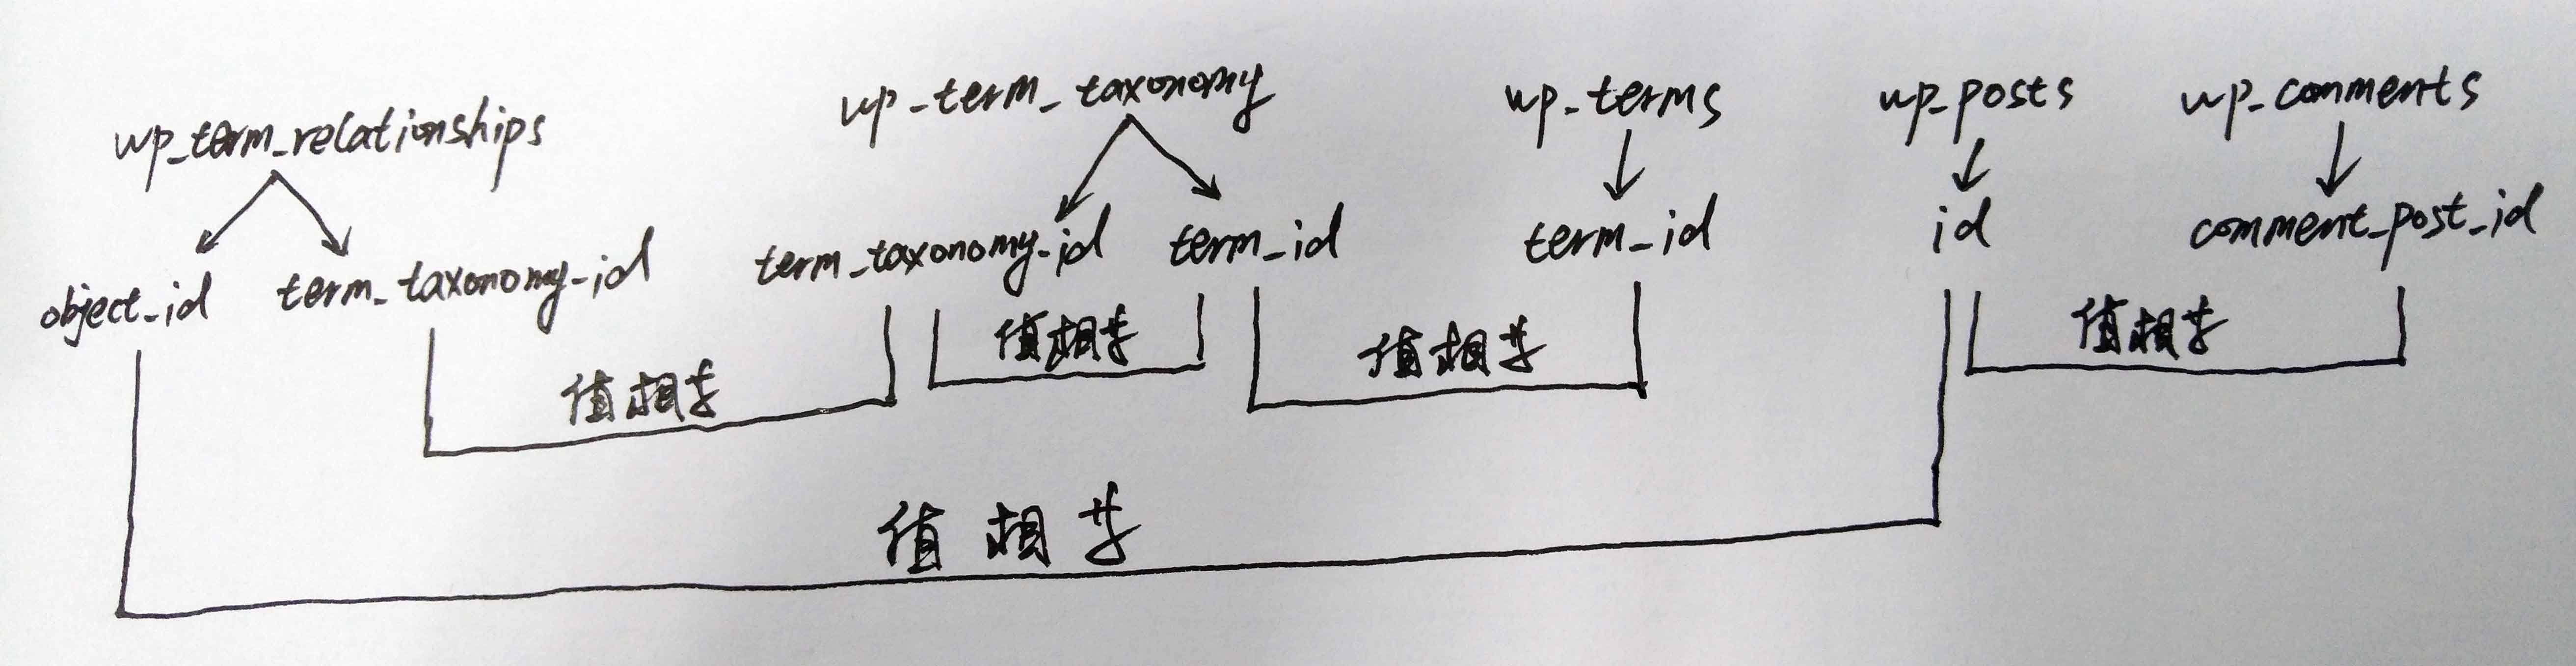 wp_term_relationships
wp_term_taxonomy
wp_terms
wp_posts
wp_comments
object_id
term_taxonomy_id
term_taxonomy_id
term_id
term_id
id
comment_post_id
值相等
值相等
值相等
值相等
值相等